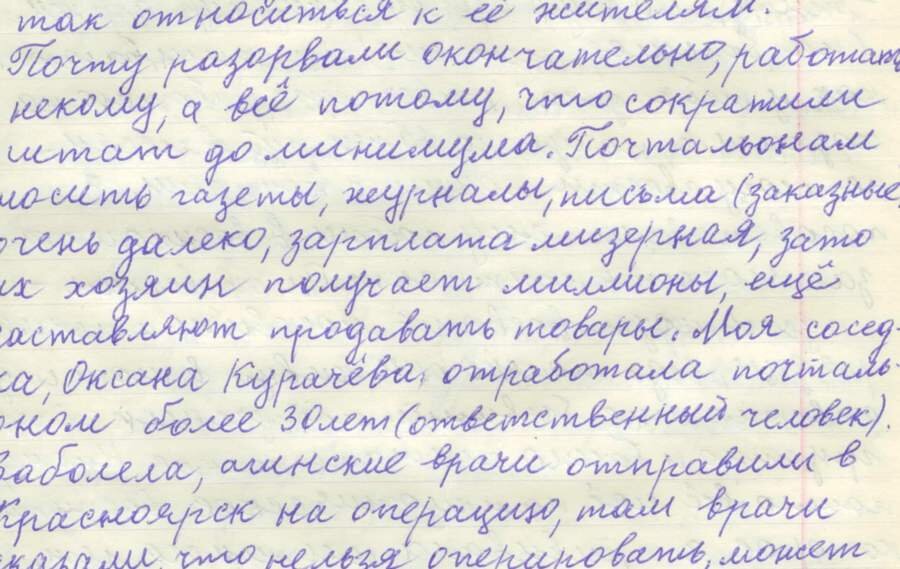 так относиться к её жителям.
Почту разорвали окончательно, работать
некому, а всё потому, что сократили
штат до минимума. Почтальонам
носить газеты, журналы, письма (заказные)
очень далеко, зарплата мизерная, зато
их хозяин получает миллионы, ещё
заставляют продавать товары. Моя сосед-
ка, Оксана Курачёва, отработала почталь-
оном более 30 лет (ответственный человек).
Заболела, агинские врачи отправили в
Красноярск на операцию, там врачи
сказали, что нельзя оперировать, может